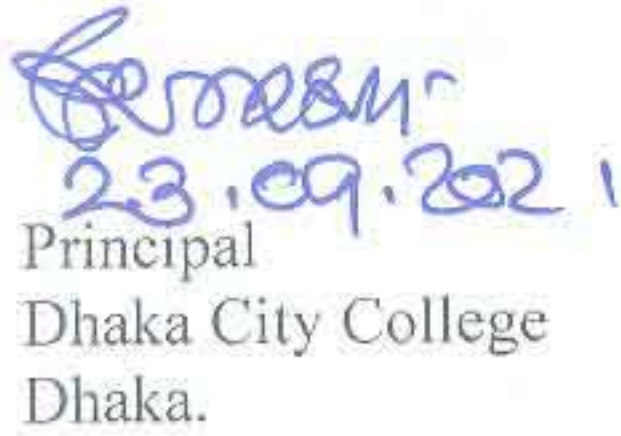 23.09.2021
Principal
Dhaka City College
Dhaka.